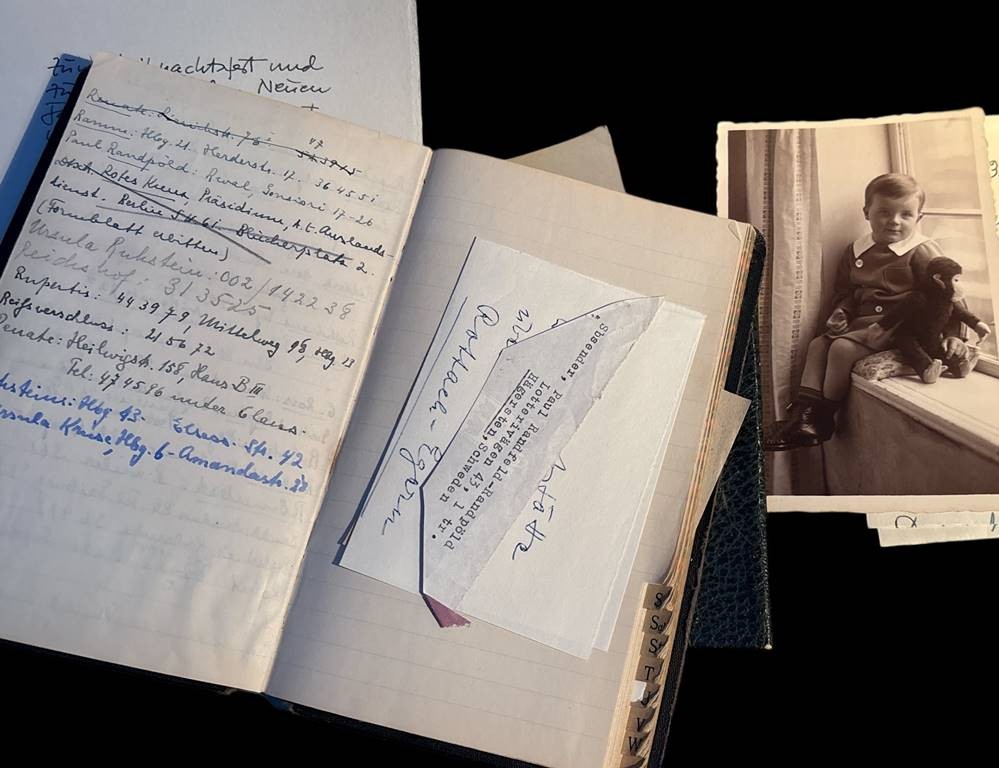 nachtsfest und
Neuen
Renate:
Ramm: Hbg. 21. Herderstr. 17. 36 45 51
Paul Randpöld: Reval, Gonsiori 17-26
Dtsch. Rotes Kreuz, Präsidium, A.t. Auslands-
dienst. Berlin SW 61. Blücherplatz 2.
(Formblatt erbitten)
Ursula Ruhstein: 002/1422 38
Reichshof: 31 35 25
Rupertis: 44 39 79, Mittelweg 98, Hbg 13
Reißverschluss: 21 56 72
Renate: Heilwigstr. 158, Haus B III
Tel: 47 45 96 unter Claus.
Hbg 43. Str. 42
Ursula Kruse, Hbg. 6 - Amandastr.
Absender, Paul Randfeld-Randpöld
Lotterivägen 43, 1 tr.
Hägersten, Schweden
Rottach-Egern
S
T
V
W